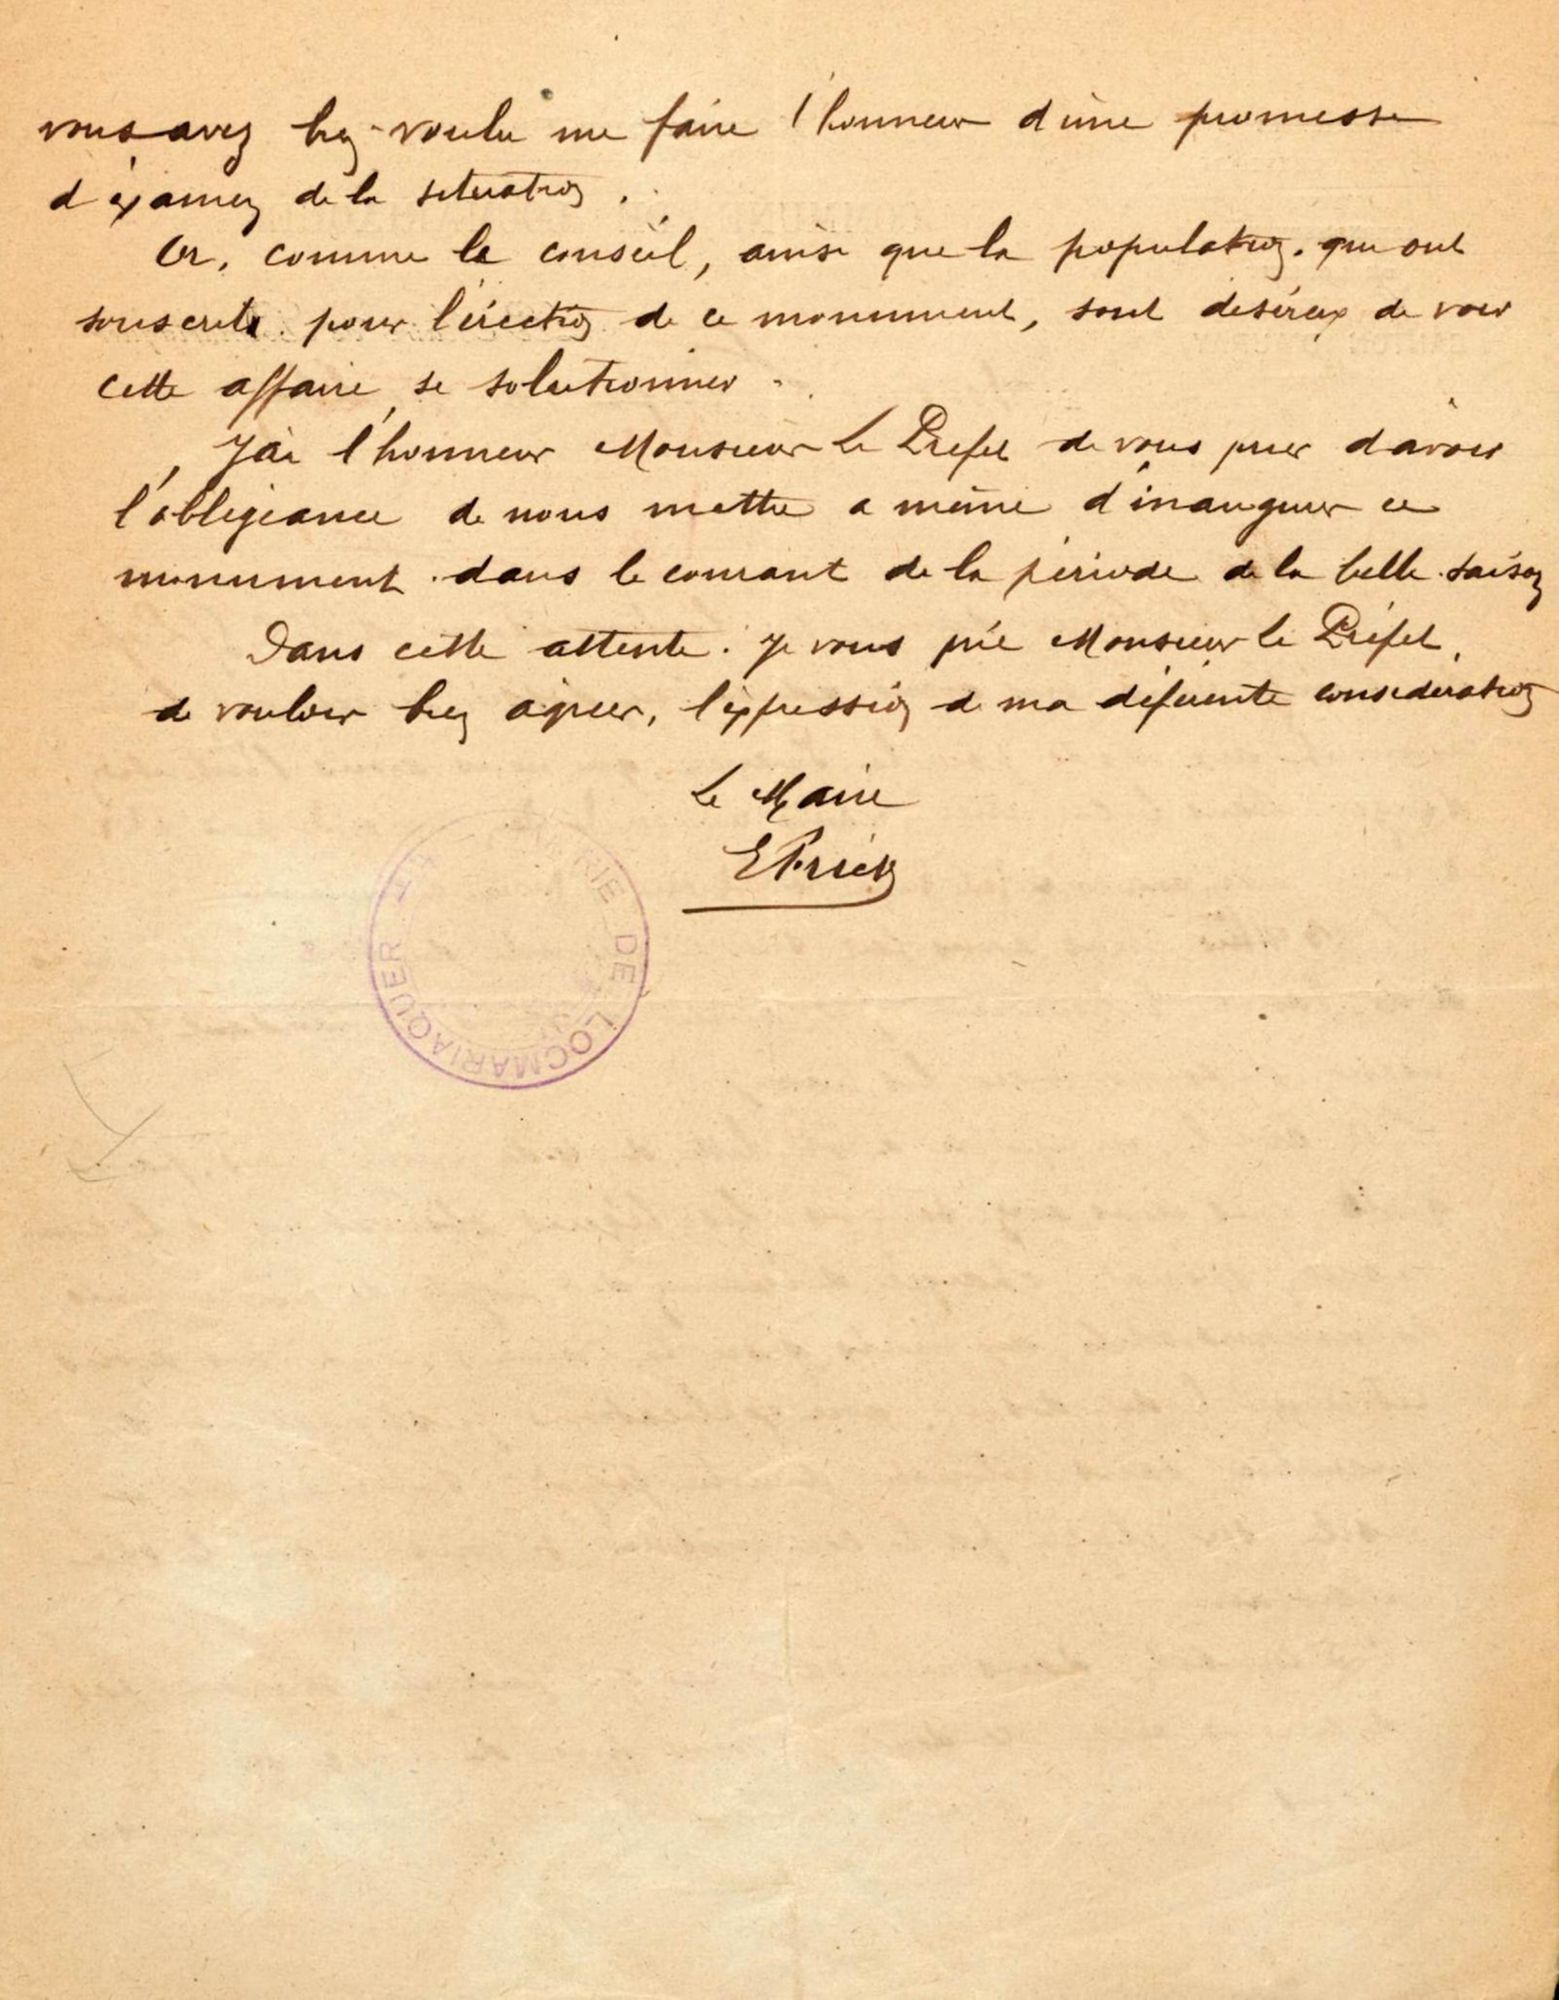 vous avez bien voulu me faire l'honneur d'une promesse
d'examen de la situation.
Or, comme le conseil, ainsi que la population. qui ont
souscrits pour l'érection de ce monument, sont desireux de voir
cette affaire se solutionner.
J'ai l'honneur Monsieur Le Préfet de vous prier d'avoir
l'obligeance de nous mettre a même d'inaugurer ce
monument. dans le courant de la période de la belle saison
Dans cette attente. Je vous prie Monsieur le Préfet,
de vouloir bien agréer, l'expression de ma déférente consideration
Le Maire
MAIRIE DE LOCMARIAQUER